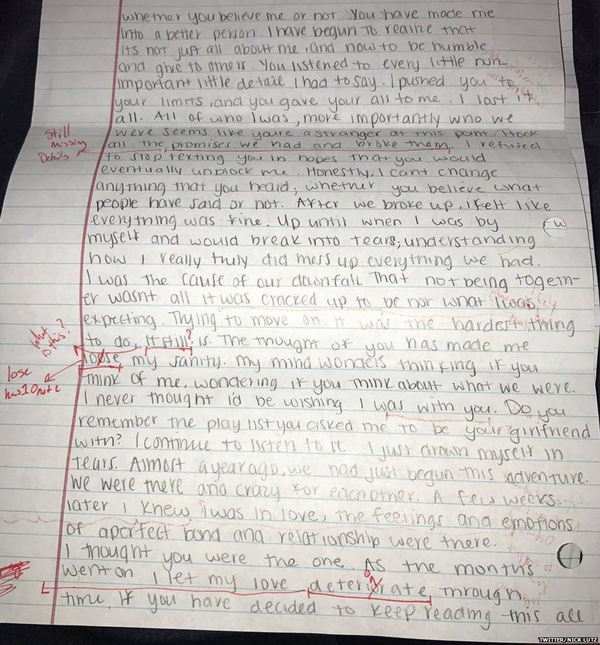 whether you believe me or not. You have made me
into a better person. I have begun to realize that
its not just all about me, and now to be humble
and give to others. You listened to every little nun
important little detail I had to say. I pushed you to
your limits, and you gave your all to me. I lost it
all. All of who I was, more importantly who we
were seems like youre a stranger at this point. I took
Still
missing
Details
all the promises we had and broke them, I refused
to stop texting you in hopes that you would
eventually unblock me. Honestly, I cant change
anything that you heard, whether you believe what
people have said or not. After we broke up, I felt like
everything was fine. Up until when I was by
myself and would break into tears, understanding
how I really truly did mess up everything we had.
I was the cause of our downfall. That not being togeth-
er wasnt all it was cracked up to be nor what I was
expecting. Trying to move on. It was the hardest thing
What
is this?
to do, it still? is. The thought of you has made me
loose my sanity. My mind wonders thinking if you
lose
has 1 O not 2
think of me, wondering if you think about what we were.
I never thought I'd be wishing I was with you. Do you
remember the play list you asked me to be your girlfriend
with? I continue to listen to it. I just drown myself in
tears. Almost a year ago, we had just begun this adventure.
We were there and crazy for eachother. A few weeks
later I knew I was in love, the feelings and emotions
of a perfect bond and relationship were there.
I thought you were the one. As the months
went on I let my love deterirate, through
time. If you have decided to keep reading this all
TWITTER/NICK LUTZ